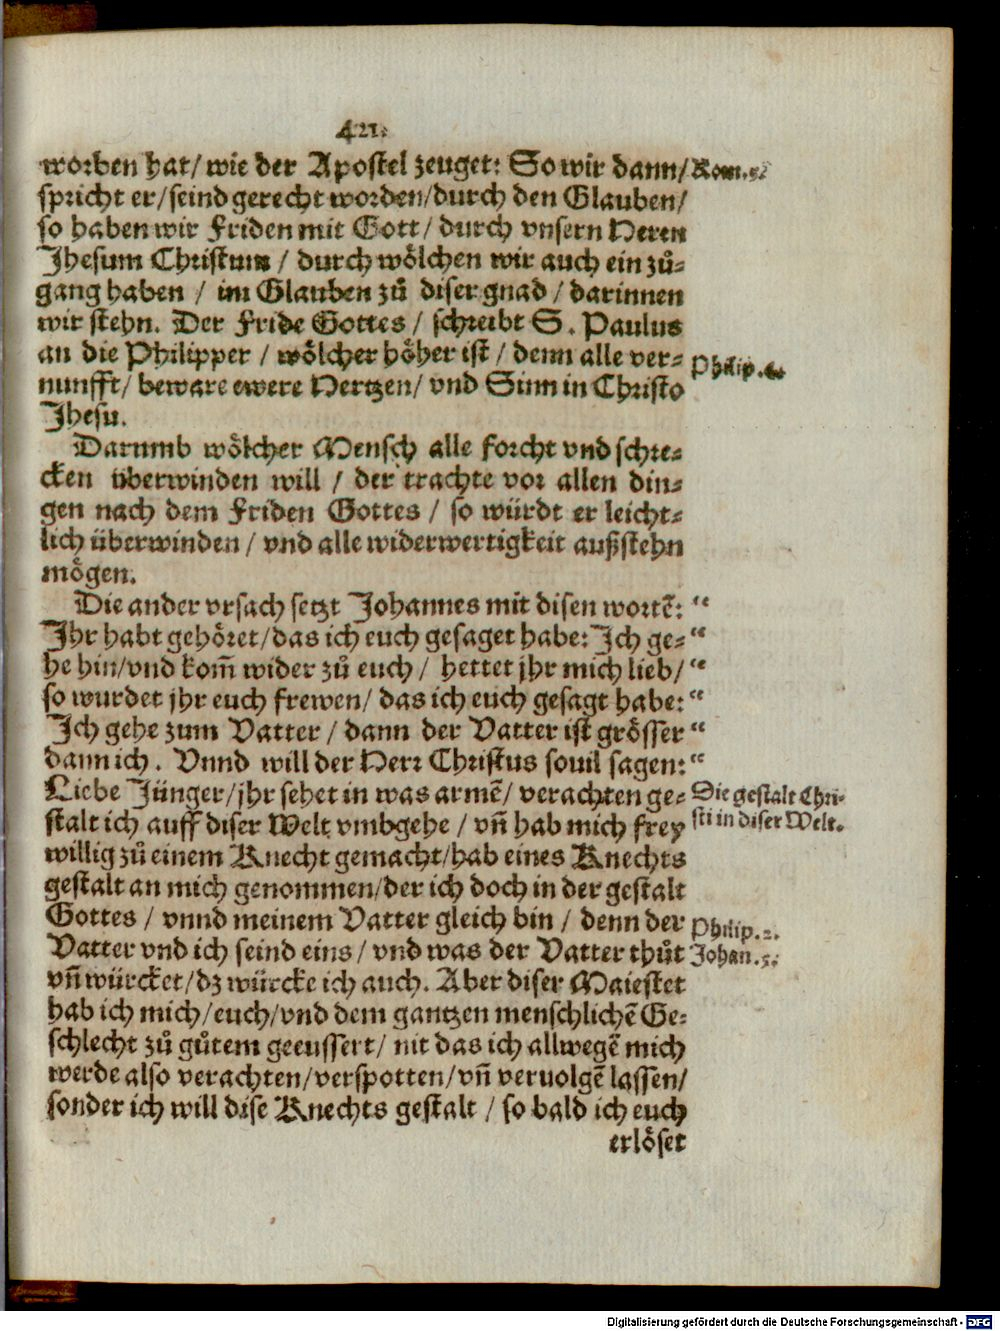 421.
worben hat/ wie der Apostel zeuget: So wir dann/ Rom. 5.
spricht er/ seind gerecht worden/ durch den Glauben/
so haben wir Friden mit Gott/ durch vnsern Herrn
Jhesum Christum / durch wölchen wir auch ein zů-
gang haben / im Glauben zů diser gnad/ darinnen
wir stehn. Der Fride Gottes / schreibt S. Paulus
an die Philipper / wölcher höher ist / denn alle ver- Philip. 4.
nunfft/ beware ewere Hertzen/ vnd Sinn in Christo
Jhesu.
Darumb wölcher Mensch alle forcht vnd schre-
cken überwinden will / der trachte vor allen din-
gen nach dem Friden Gottes / so würdt er leicht-
lich überwinden/ vnd alle widerwertigkeit außstehn
mögen.
Die ander vrsach setzt Johannes mit disen wortē: “
Ihr habt gehöret/ das ich euch gesaget habe: Ich ge- “
he hin/ vnd kom̄ wider zů euch/ hettet jhr mich lieb/ “
so wurdet jhr euch frewen/ das ich euch gesagt habe: “
Ich gehe zum Vatter / dann der Vatter ist grösser “
dann ich. Vnnd will der Herr Christus souil sagen: “
Liebe Jünger/ jhr sehet in was armē/ verachten ge- Die gestalt Chri-
stalt ich auff diser Welt vmbgehe / vn̄ hab mich frey sti in diser Welt.
willig zů einem Knecht gemacht/ hab eines Knechts
gestalt an mich genommen/ der ich doch in der gestalt
Gottes / vnnd meinem Vatter gleich bin / denn der Philip. 2.
Vatter vnd ich seind eins/ vnd was der Vatter thůt Johan. 5.
vn̄ würcket/ dz würcke ich auch. Aber diser Maiestet
hab ich mich/ euch/ vnd dem gantzen menschlichē Ge-
schlecht zů gůtem geeussert/ nit das ich allwegē mich
werde also verachten/ verspotten/ vn̄ veruolgē lassen/
sonder ich will dise Knechts gestalt / so bald ich euch
erlöset
Digitalisierung gefördert durch die Deutsche Forschungsgemeinschaft - DFG